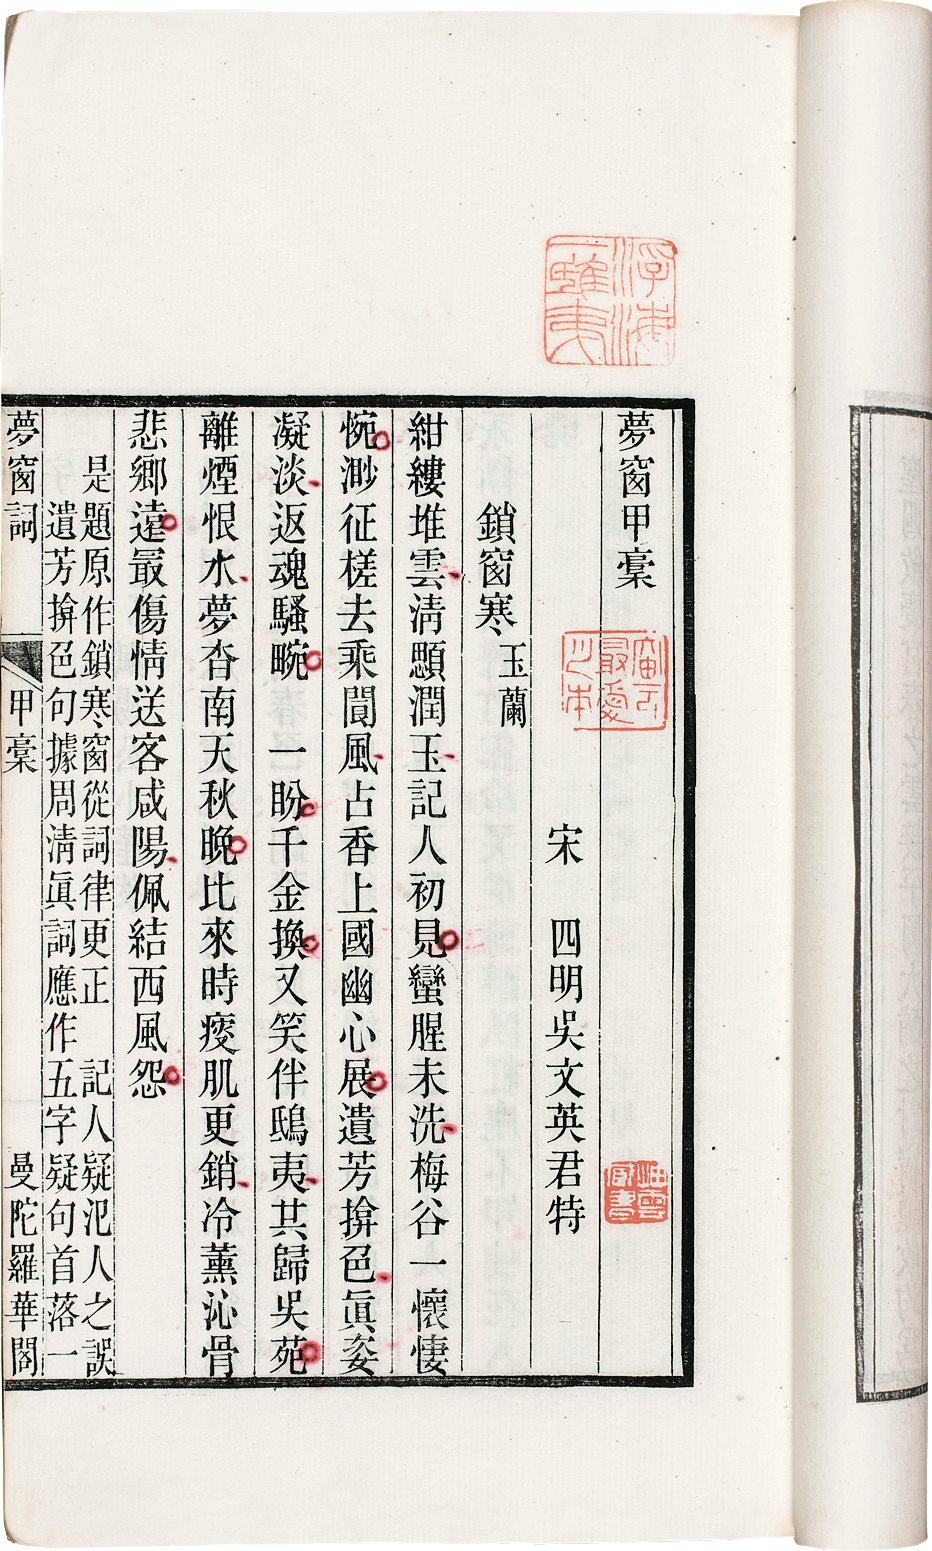 夢窗甲稾
宋　四明吳文英君特
鎖窗寒 玉蘭
紺縷堆雲淸顋潤玉記人初見蠻腥未洗梅谷一懷悽
惋渺征槎去乘閬風占香上國幽心展遺芳揜色眞姿
凝淡返魂騷畹　一盼千金換又笑伴鴟夷共歸吳苑
離煙恨水夢杳南天秋晚比來時瘦肌更銷冷薰沁骨
悲鄉遠最傷情送客咸陽佩結西風怨
是題原作鎖寒窗從詞律更正　記人疑氾人之誤
遺芳揜色句據周淸眞詞應作五字疑句首落一
夢窗詞　甲稾　曼陀羅華閣